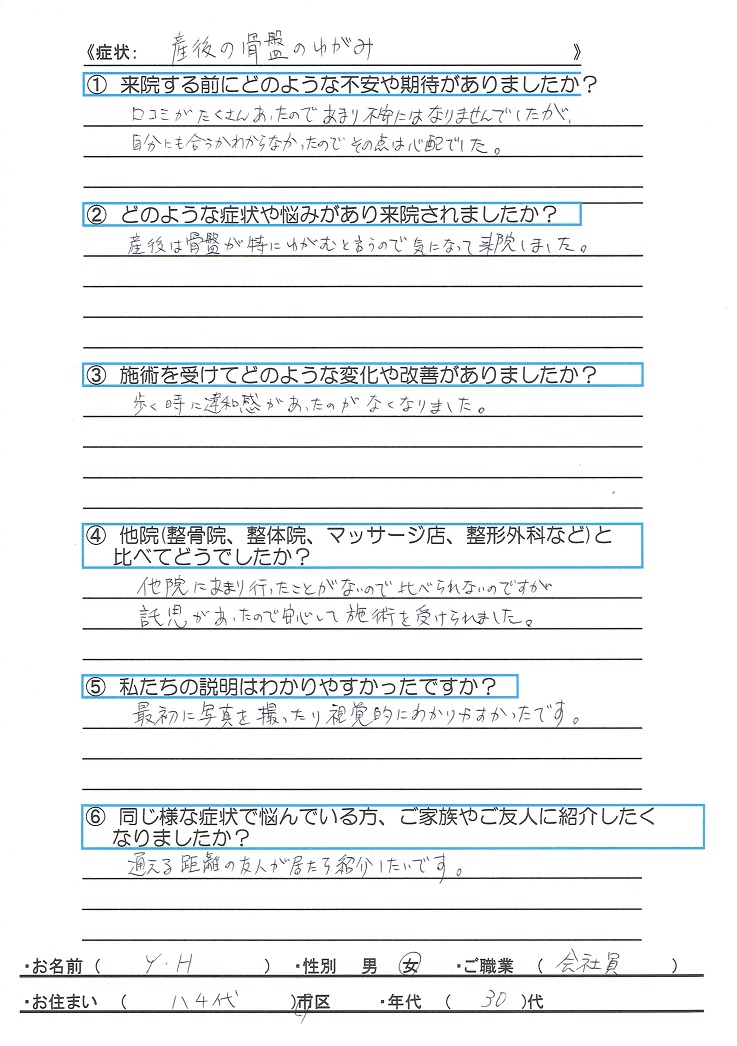 《症状: 産後の骨盤のゆがみ 》
① 来院する前にどのような不安や期待がありましたか?
口コミがたくさんあったのであまり不安にはなりませんでしたが、
自分にも合うかわからなかったのでその点は心配でした。
② どのような症状や悩みがあり来院されましたか?
産後は骨盤が特にゆがむと言うので気になって来院しました。
③ 施術を受けてどのような変化や改善がありましたか?
歩く時に違和感があったのがなくなりました。
④ 他院(整骨院、整体院、マッサージ店、整形外科など)と
比べてどうでしたか?
他院にあまり行ったことがないので比べられないのですが
託児があったので安心して施術を受けられました。
⑤ 私たちの説明はわかりやすかったですか?
最初に写真を撮ったり視覚的にわかりやすかったです。
⑥ 同じ様な症状で悩んでいる方、ご家族やご友人に紹介したく
なりましたか?
通える距離の友人が居たら紹介したいです。
・お名前 ( Y.H ) ・性別 男 女 ・ご職業 ( 会社員 )
・お住まい ( 八千代 )市区 ・年代 ( 30 )代